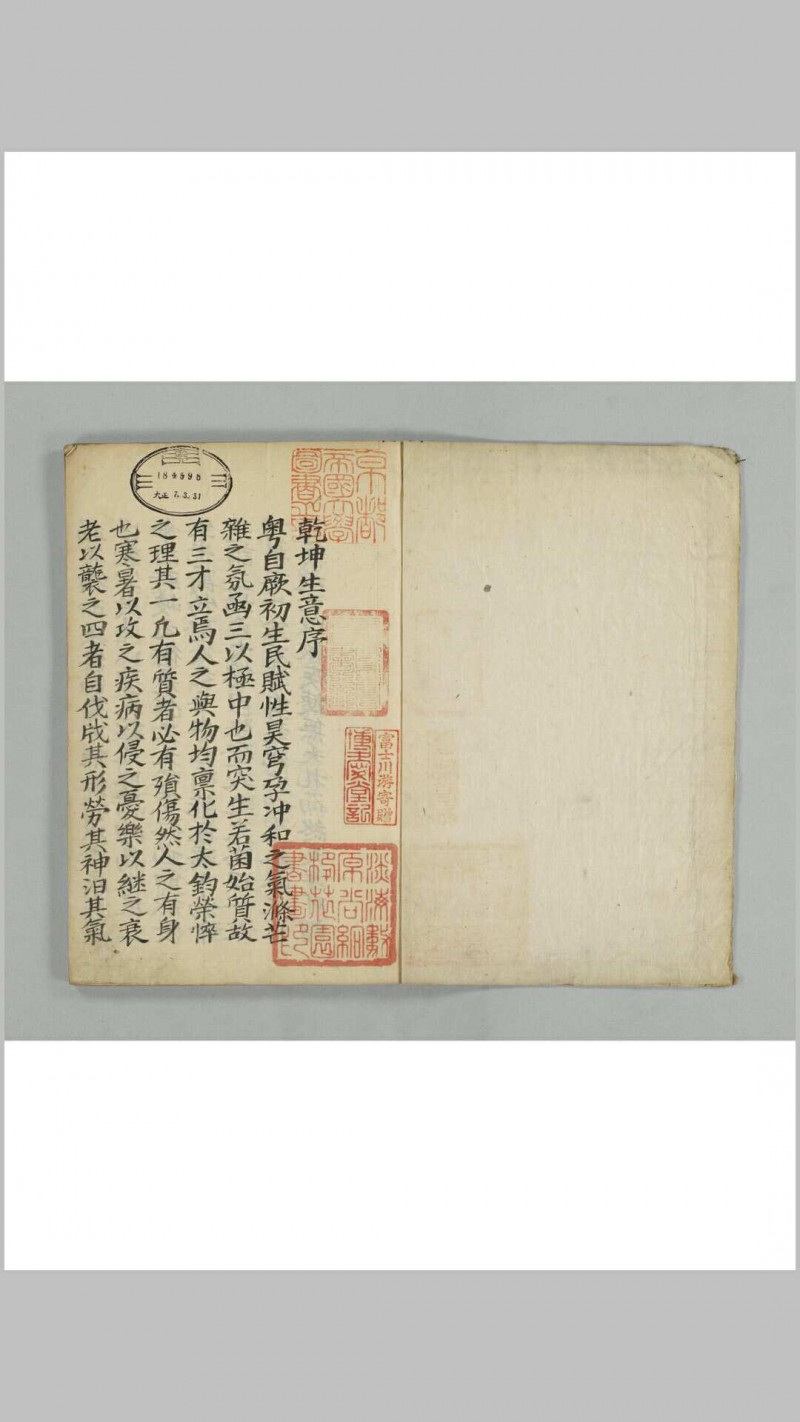 乾坤生意序
粤自厥初生民賦性昊穹孕冲和之氣滌芒
雜之氛函三以極中也而突生若菌始質故
有三才立焉人之與物均禀化於太鈞榮悴
之理其一凡有質者必有殞傷然人之有身
也寒暑以攻之疾病以侵之憂樂以継之衰
老以襲之四者自伐戕其形勞其神汩其氣
京都
帝國大學
圖書
富士川游寄贈
184996
大正 7.3.31